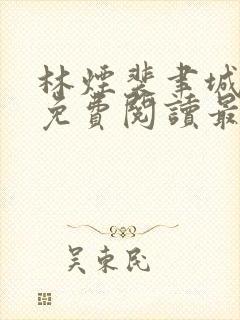 林煙裴聿城
免費閱讀最
吴東民